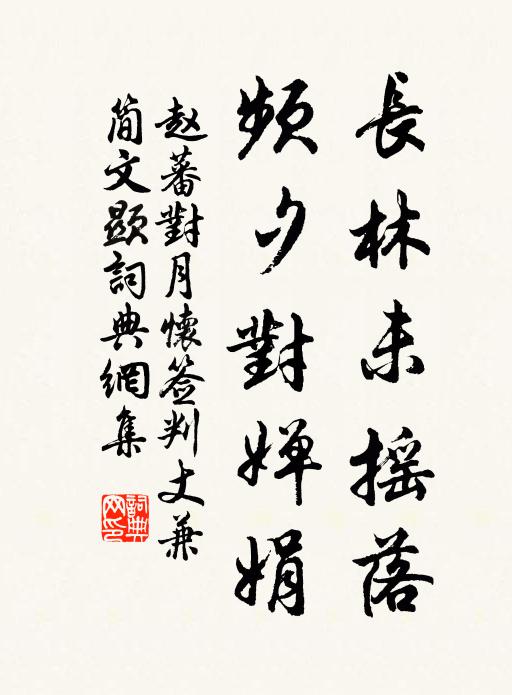 長林未摇落
頻夕對嬋娟
赵蕃對月懷簽判丈兼
简文顯詞典網集
詞典網印